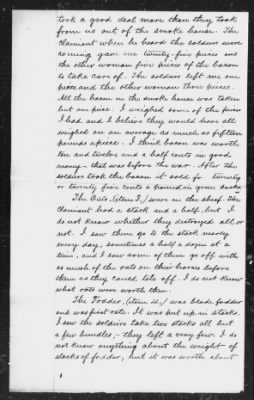 took a good deal more than they took
from us out of the smoke house. The
claimant when he heard the soldiers were
coming gave me twenty-five pieces and
the other woman five pieces of the bacon
to take care of. The soldiers left me one
piece and the other woman three pieces.
All the bacon in the smoke house was taken
but one piece. I weighed some of the pieces
I had and I believe they would have all
weighed on an average as much as fifteen
pounds apiece. I think bacon was worth
ten and twelve and a half cents in good
money - that was before the war. After the
soldiers took the bacon it sold for twenty
or twenty five cents a pound in green backs
The Oats, (item 3,) were in the sheaf. The
claimant had a stack and a half, but I
do not know whether they destroyed all or
not. I saw them go to the stack nearly
every day, sometimes a half a dozen at a
time, and I saw some of them go off with
as much of the oats on their horses before
them as they could tote off. I do not know
what oats were worth then.
The Fodder, (item 4,) was blade fodder
and was first rate. It was put up in stacks.
I saw the soldiers take two stacks all but
a few bundles, - they left a very few. I do
not know anything about the weight of
stacks of fodder, but it was worth about